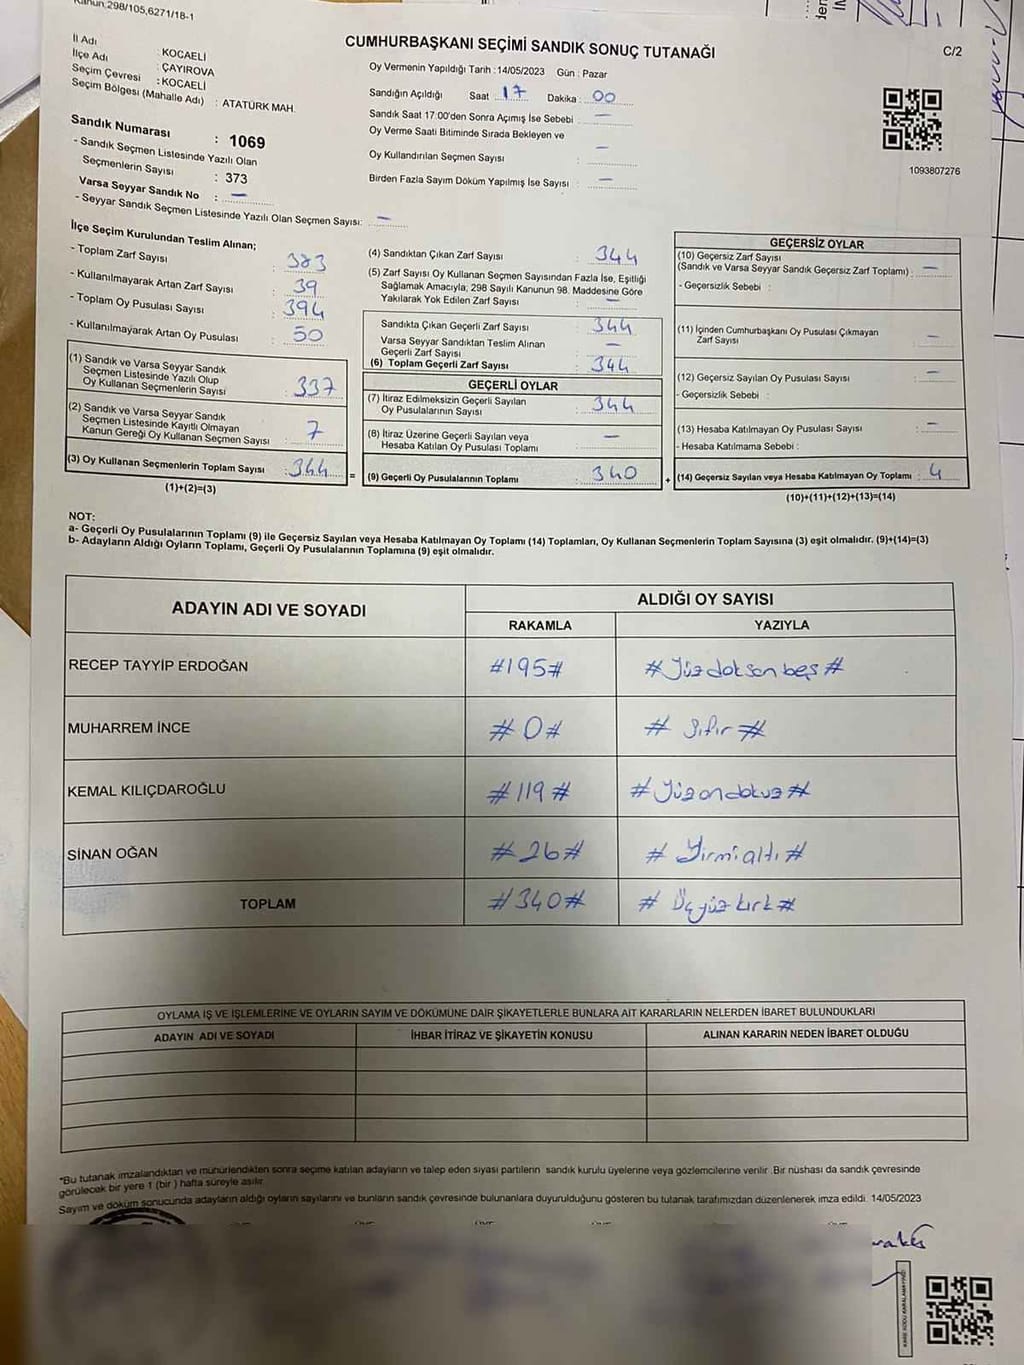 Kanun.298/105,6271/18-1
CUMHURBAŞKANI SEÇİMİ SANDIK SONUÇ TUTANAĞI
C/2
İl Adı : KOCAELİ
İlçe Adı : ÇAYIROVA
Seçim Çevresi : KOCAELİ
Seçim Bölgesi (Mahalle Adı) : ATATÜRK MAH.
Sandık Numarası : 1069
- Sandık Seçmen Listesinde Yazılı Olan
Seçmenlerin Sayısı : 373
Varsa Seyyar Sandık No : –
- Seyyar Sandık Seçmen Listesinde Yazılı Olan Seçmen Sayısı: –
Oy Vermenin Yapıldığı Tarih :14/05/2023 Gün : Pazar
Sandığın Açıldığı Saat 17 Dakika : 00
Sandık Saat 17.00'den Sonra Açımış İse Sebebi : –
Oy Verme Saati Bitiminde Sırada Bekleyen ve
Oy Kullandırılan Seçmen Sayısı : –
Birden Fazla Sayım Döküm Yapılmış İse Sayısı : –
1093807276
İlçe Seçim Kurulundan Teslim Alınan;
- Toplam Zarf Sayısı : 383
- Kullanılmayarak Artan Zarf Sayısı : 39
- Toplam Oy Pusulası Sayısı : 394
- Kullanılmayarak Artan Oy Pusulası : 50
(1) Sandık ve Varsa Seyyar Sandık
Seçmen Listesinde Yazılı Olup
Oy Kullanan Seçmenlerin Sayısı : 337
(2) Sandık ve Varsa Seyyar Sandık
Seçmen Listesinde Kayıtlı Olmayan
Kanun Gereği Oy Kullanan Seçmen Sayısı : 7
(3) Oy Kullanan Seçmenlerin Toplam Sayısı : 344 =
(1)+(2)=(3)
(4) Sandıktan Çıkan Zarf Sayısı : 344
(5) Zarf Sayısı Oy Kullanan Seçmen Sayısından Fazla İse, Eşitliği
Sağlamak Amacıyla; 298 Sayılı Kanunun 98. Maddesine Göre
Yakılarak Yok Edilen Zarf Sayısı : –
Sandıkta Çıkan Geçerli Zarf Sayısı : 344
Varsa Seyyar Sandıktan Teslim Alınan
Geçerli Zarf Sayısı : –
(6) Toplam Geçerli Zarf Sayısı : 344
GEÇERLİ OYLAR
(7) İtiraz Edilmeksizin Geçerli Sayılan
Oy Pusulalarının Sayısı : 344
(8) İtiraz Üzerine Geçerli Sayılan veya
Hesaba Katılan Oy Pusulası Toplamı : –
(9) Geçerli Oy Pusulalarının Toplamı : 340 +
GEÇERSİZ OYLAR
(10) Geçersiz Zarf Sayısı
(Sandık ve Varsa Seyyar Sandık Geçersiz Zarf Toplamı) : –
- Geçersizlik Sebebi :
(11) İçinden Cumhurbaşkanı Oy Pusulası Çıkmayan
Zarf Sayısı : –
(12) Geçersiz Sayılan Oy Pusulası Sayısı : –
- Geçersizlik Sebebi :
(13) Hesaba Katılmayan Oy Pusulası Sayısı : –
- Hesaba Katılmama Sebebi :
(14) Geçersiz Sayılan veya Hesaba Katılmayan Oy Toplamı : 4
(10)+(11)+(12)+(13)=(14)
NOT:
a- Geçerli Oy Pusulalarının Toplamı (9) ile Geçersiz Sayılan veya Hesaba Katılmayan Oy Toplamı (14) Toplamları, Oy Kullanan Seçmenlerin Toplam Sayısına (3) eşit olmalıdır. (9)+(14)=(3)
b- Adayların Aldığı Oyların Toplamı, Geçerli Oy Pusulalarının Toplamına (9) eşit olmalıdır.
ADAYIN ADI VE SOYADI ALDIĞI OY SAYISI
RAKAMLA YAZIYLA
RECEP TAYYİP ERDOĞAN #195# #Yüzdoksanbeş#
MUHARREM İNCE #0# #Sıfır#
KEMAL KILIÇDAROĞLU #119# #Yüzondokuz#
SİNAN OĞAN #26# #Yirmialtı#
TOPLAM #340# #Üçyüzkırk#
OYLAMA İŞ VE İŞLEMLERİNE VE OYLARIN SAYIM VE DÖKÜMÜNE DAİR ŞİKAYETLERLE BUNLARA AİT KARARLARIN NELERDEN İBARET BULUNDUKLARI
ADAYIN ADI VE SOYADI İHBAR İTİRAZ VE ŞİKAYETİN KONUSU ALINAN KARARIN NEDEN İBARET OLDUĞU
*Bu tutanak imzalandıktan ve mühürlendikten sonra seçime katılan adayların ve talep eden siyasi partilerin sandık kurulu üyelerine veya gözlemcilerine verilir. Bir nüshası da sandık çevresinde
görülecek bir yere 1 (bir ) hafta süreyle asılır.
Sayım ve döküm sonucunda adayların aldığı oyların sayılarını ve bunların sandık çevresinde bulunanlara duyurulduğunu gösteren bu tutanak tarafımızdan düzenlenerek imza edildi. 14/05/2023
KARE KODU KARALAMAYINIZ!